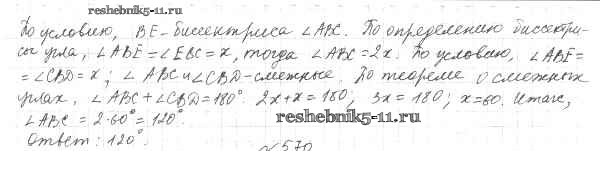 reshebnik5-11.ru
По условию, BE-биссектриса ∠ABC. По определению биссектри-
сы угла, ∠ABE=∠EBC=x, тогда ∠ABC=2x. По условию, ∠ABE=
=∠CBD=x; ∠ABC и ∠CBD-смежные. По теореме о смежных
углах, ∠ABC+∠CBD=180°. 2x+x=180; 3x=180; x=60. Итак,
∠ABC = 2·60°=120°.
reshebnik5-11.ru
Ответ: 120°.
№570